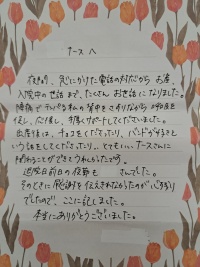 ナースへ
夜中、気にかけた電話の対応から お産、
入院中の世話まで、たくさん お世話になりました。
陣痛で 私の背中をさすりながら 呼吸を
促し、応援し、 サポートしてくださいました。
出産後は、チョコをくださったり、バンドが好きと
いう話をしてくださったり、とてもいい ナースさんに
関わることができてうれしかったです。
退院日前日の夜勤も さんでした。
そのときに 感謝を 伝えきれなかったのが 心残り
でしたので、ここに記しました。
本当にありがとうございました。